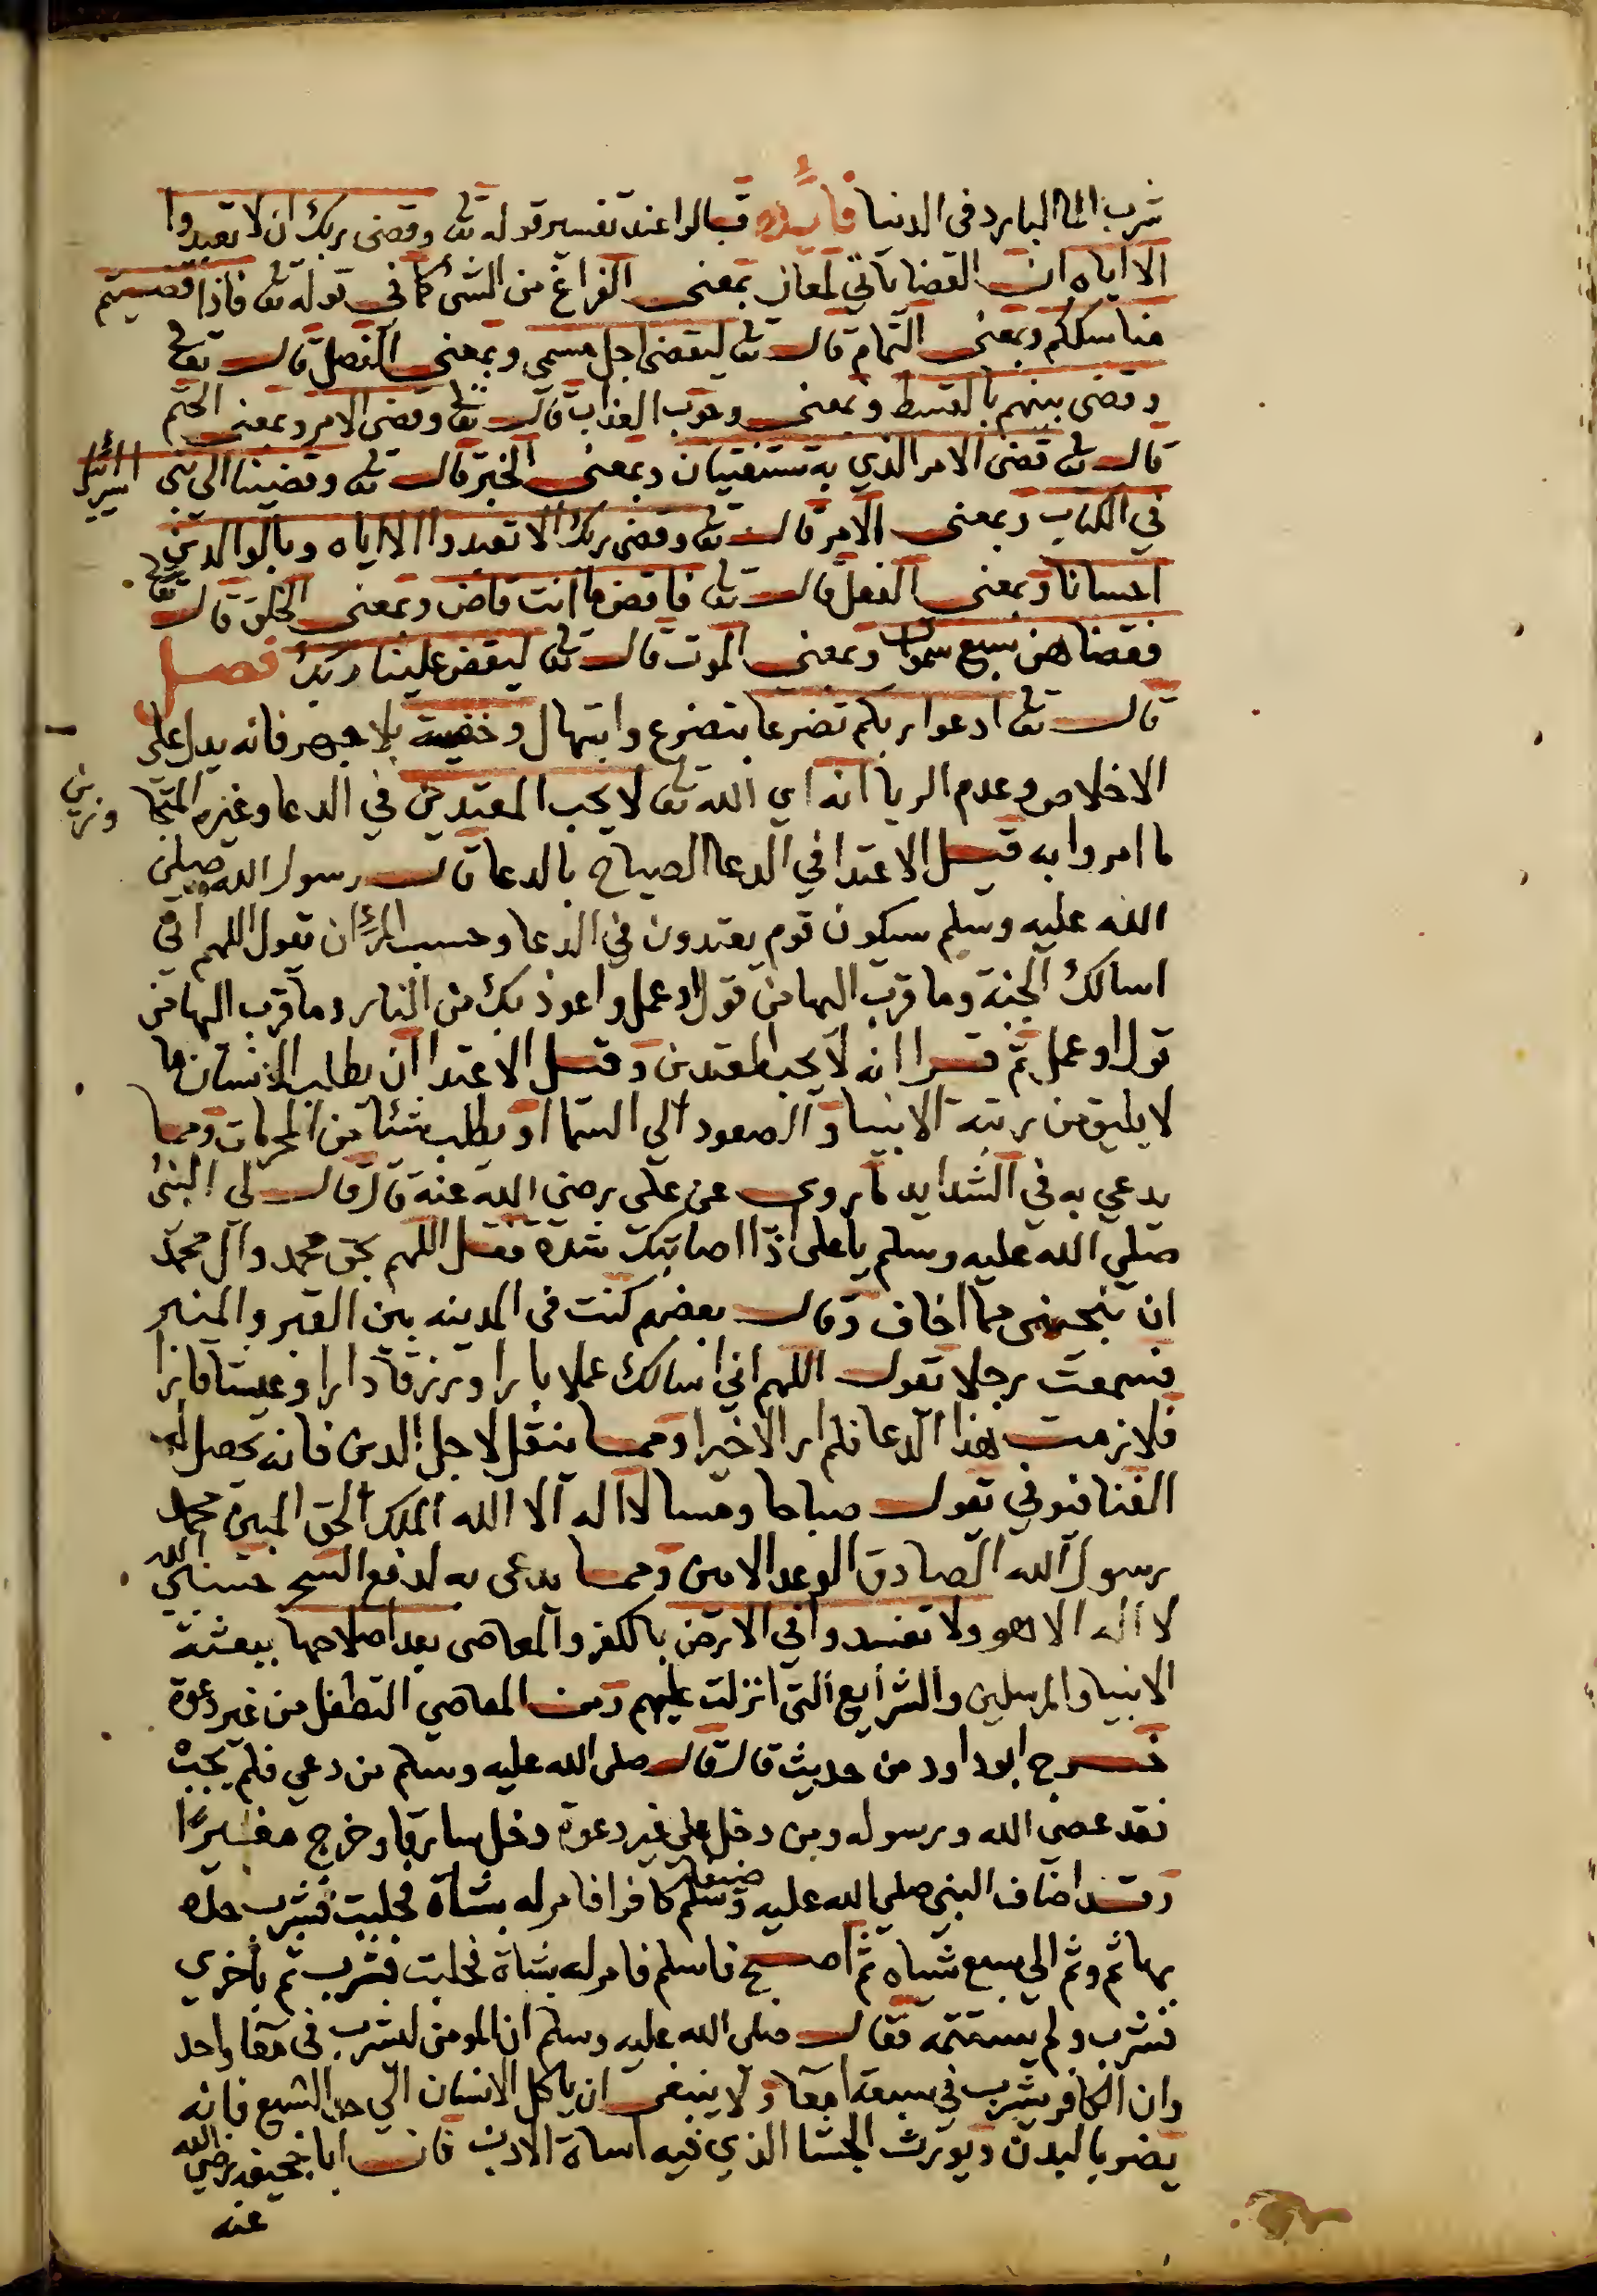 شرب الما البارد في الدنيا فائده قالوا عند تفسير قوله تعا وقضى ربك ان لا تعبدوا
الا اياه ان القضا ياتي لمعان بمعنى الفراغ من الشي كما في قوله تعا فاذا قضيتم
مناسككم وبمعنى التمام قال تعا ليقضى اجل مسمى وبمعنى الفصل قال تعا
وقضى بينهم بالقسط وبمعنى وجوب العذاب قال تعا وقضى الامر وبمعنى الحتم
قال تعا قضى الامر الذي به تستفتيان وبمعنى الخبر قال تعا وقضينا الى بني اسرائيل
في الكتاب وبمعنى الامر قال تعا وقضى ربك الا تعبدوا الا اياه وبالوالدين
احسانا وبمعنى الفعل قال تعا فاقض ما انت قاض وبمعنى الخلق قال تعا
فقضاهن سبع سموات وبمعنى الموت قال تعا ليقض علينا ربك فصل
قال تعا ادعوا ربكم تضرعا بتضرع وابتهال وخفية بلا جهر فانه يدل على
الاخلاص وعدم الريا انه اي الله تعا لا يحب المعتدين في الدعا وغيره المتجاوزين
ما امروا به قيل الاعتدا في الدعا الصياح بالدعا قال رسول الله صلى
الله عليه وسلم سيكون قوم يعتدون في الدعا وحسب المرئ ان تقول اللهم اني
اسالك الجنة وما قرب اليها من قول او عمل واعوذ بك من النار وما قرب اليها من
قول او عمل ثم قرا انه لا يحب المعتدين وقيل الاعتدا ان يطلب الانسان ما
لا يليق من رتبة الانبيا والصعود الى السما او يطلب شئا من المحرمات ومما
يدعي به في الشدايد ما روى عن علي رضي الله عنه قال قال لى النبي
صلي الله عليه وسلم يا على اذا اصابتك شدة فقل اللهم بحق محمد وآل محمد
ان تنجينى مما اخاف وقال بعضهم كنت في المدينه بين القبر والمنبر
فسمعت رجلا تقول اللهم اني اسالك عملا بارا ورزقا دارا وعيشا قارا
فلازمت هذا الدعا فلم ار الا خيرا ومما ينقل لاجل الدين فانه يحصل له
الغنا فتوفي تقول صباحا ومسا لا اله الا الله الملك الحق المبين محمد
رسول الله الصادق الوعد الامين ومما يدعى به لدفع السحر حسبي الله
لا اله الا هو ولا تفسدوا في الارض بالكفر والمعاصى بعد اصلاحها ببعثة
الانبيا والمرسلين والشرايع التى انزلت عليهم ومن المعاصي التطفل من غير دعوة
خرج ابو داود من حديث قال قال صلى الله عليه وسلم من دعي فلم يجب
فقد عصى الله ورسوله ومن دخل على غير دعوة دخل سارقا وخرج مغيرًا
وقد اضاف النبي صلي الله عليه وسلم ضيفا كافرا فامر له بشاة فحلبت فشرب حلا
بها ثم وثم الي سبع شياه ثم اصبح فاسلم فامر له بشاة فحلبت فشرب ثم باخري
فشرب ولم يستتمه فقال صلى الله عليه وسلم ان المومن ليشرب في معا واحد
وان الكافر يشرب في سبعة امعا ولا ينبغى ان ياكل الانسان الي حد الشبع فانه
يضر بالبدن ويورث الجشا الذي فيه اساة الادب فان ابا جحيفه رضي الله
عنه